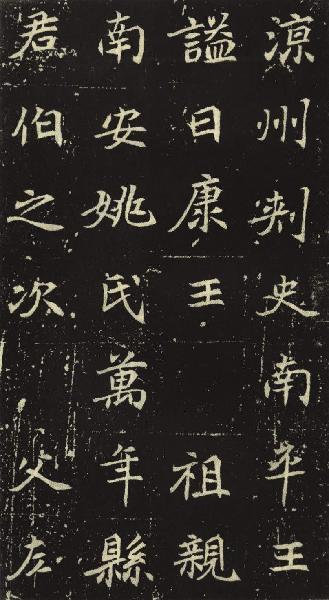 涼州刺史南平王
謚曰康王　祖親
南安姚氏萬年縣
君伯之次　父左